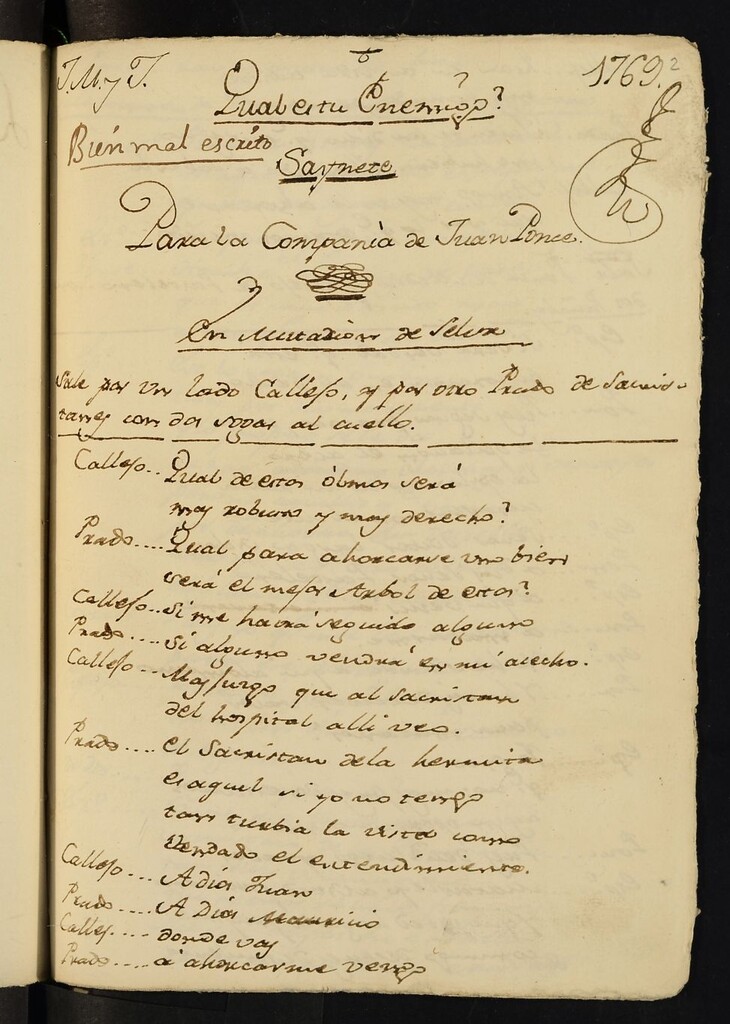 J.M.y J.
1769.
2
Qual es tu Enemigo?
Bien mal escrito
Saynete
Para la Compania de Juan Ponce.
En Mutazion de Selva
Sale por un lado Callejo, y por otro Prado de Sacris-
tanes con dos sogas al cuello.
Callejo.. Qual de estos ólmos será
mas robusto y mas derecho?
Prado.... Qual para ahorcarse uno bien
será el mejor Arbol de estos?
Callejo.. Si me havrá seguido alguno
Prado.... Si alguno vendrá en mi acecho.
Callejo... Mas juzgo que al sacristan
del hospital alli veo.
Prado.... El Sacristan dela hermita
es aquel si yo no tengo
tan turbia la vista como
vendado el entendimiento.
Callejo... A dios Juan
Prado.... A Dios Mauricio
Callej.... donde vas
Prado.... á ahorcarme vengo